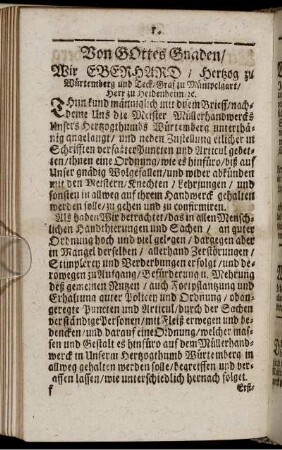 1.
Von GOttes Gnaden/
Wir EBERHARD / Hertzog zu
Würtemberg und Teck/Graf zu Mümpelgart/
Herr zu Heidenheim/ ꝛc.
THun kund männiglich mit disem Brieff/nach-
deme Uns die Meister Müllerhandwercks
Unsers Hertzogthumbs Würtemberg unterthä-
nig angelangt / und neben Zustellung etlicher in
Schrifften verfaßter Puncten und Articul gebet-
ten/ihnen eine Ordnung/wie es hinfüro/biß auf
Unser gnädig Wolgefallen/und wider abkünden
mit den Meistern/Knechten / Lehrjungen / und
sonsten in allweg auf ihrem Handwerck gehalten
werden solle/zu geben und zu confirmiren.
Als haben Wir betrachtet/das in allen Mensch-
lichen Handthierungen und Sachen / an guter
Ordnung hoch und viel gelegen / dargegen aber
in Mangel derselben / allerhand Zerstörungen /
Stümplerey und Verderbungen erfolgt /und de-
rowegen zu Aufgang/Befürderung u. Mehrung
deß gemeinen Nutzen / auch Fortpflantzung und
Erhaltung guter Policey und Ordnung / oban-
geregte Puncten und Articul/durch der Sachen
verständige Personen/mit Fleiß erwegen und be-
dencken/und darauf eine Ordnung/welcher mas-
sen und Gestalt es hinfüro auf dem Müllerhand-
werck in Unserm Hertzogthumb Würtemberg in
allweg gehalten werden solle/begreiffen und ver-
fassen lassen/wie unterschiedlich hernach folget.
Erst-